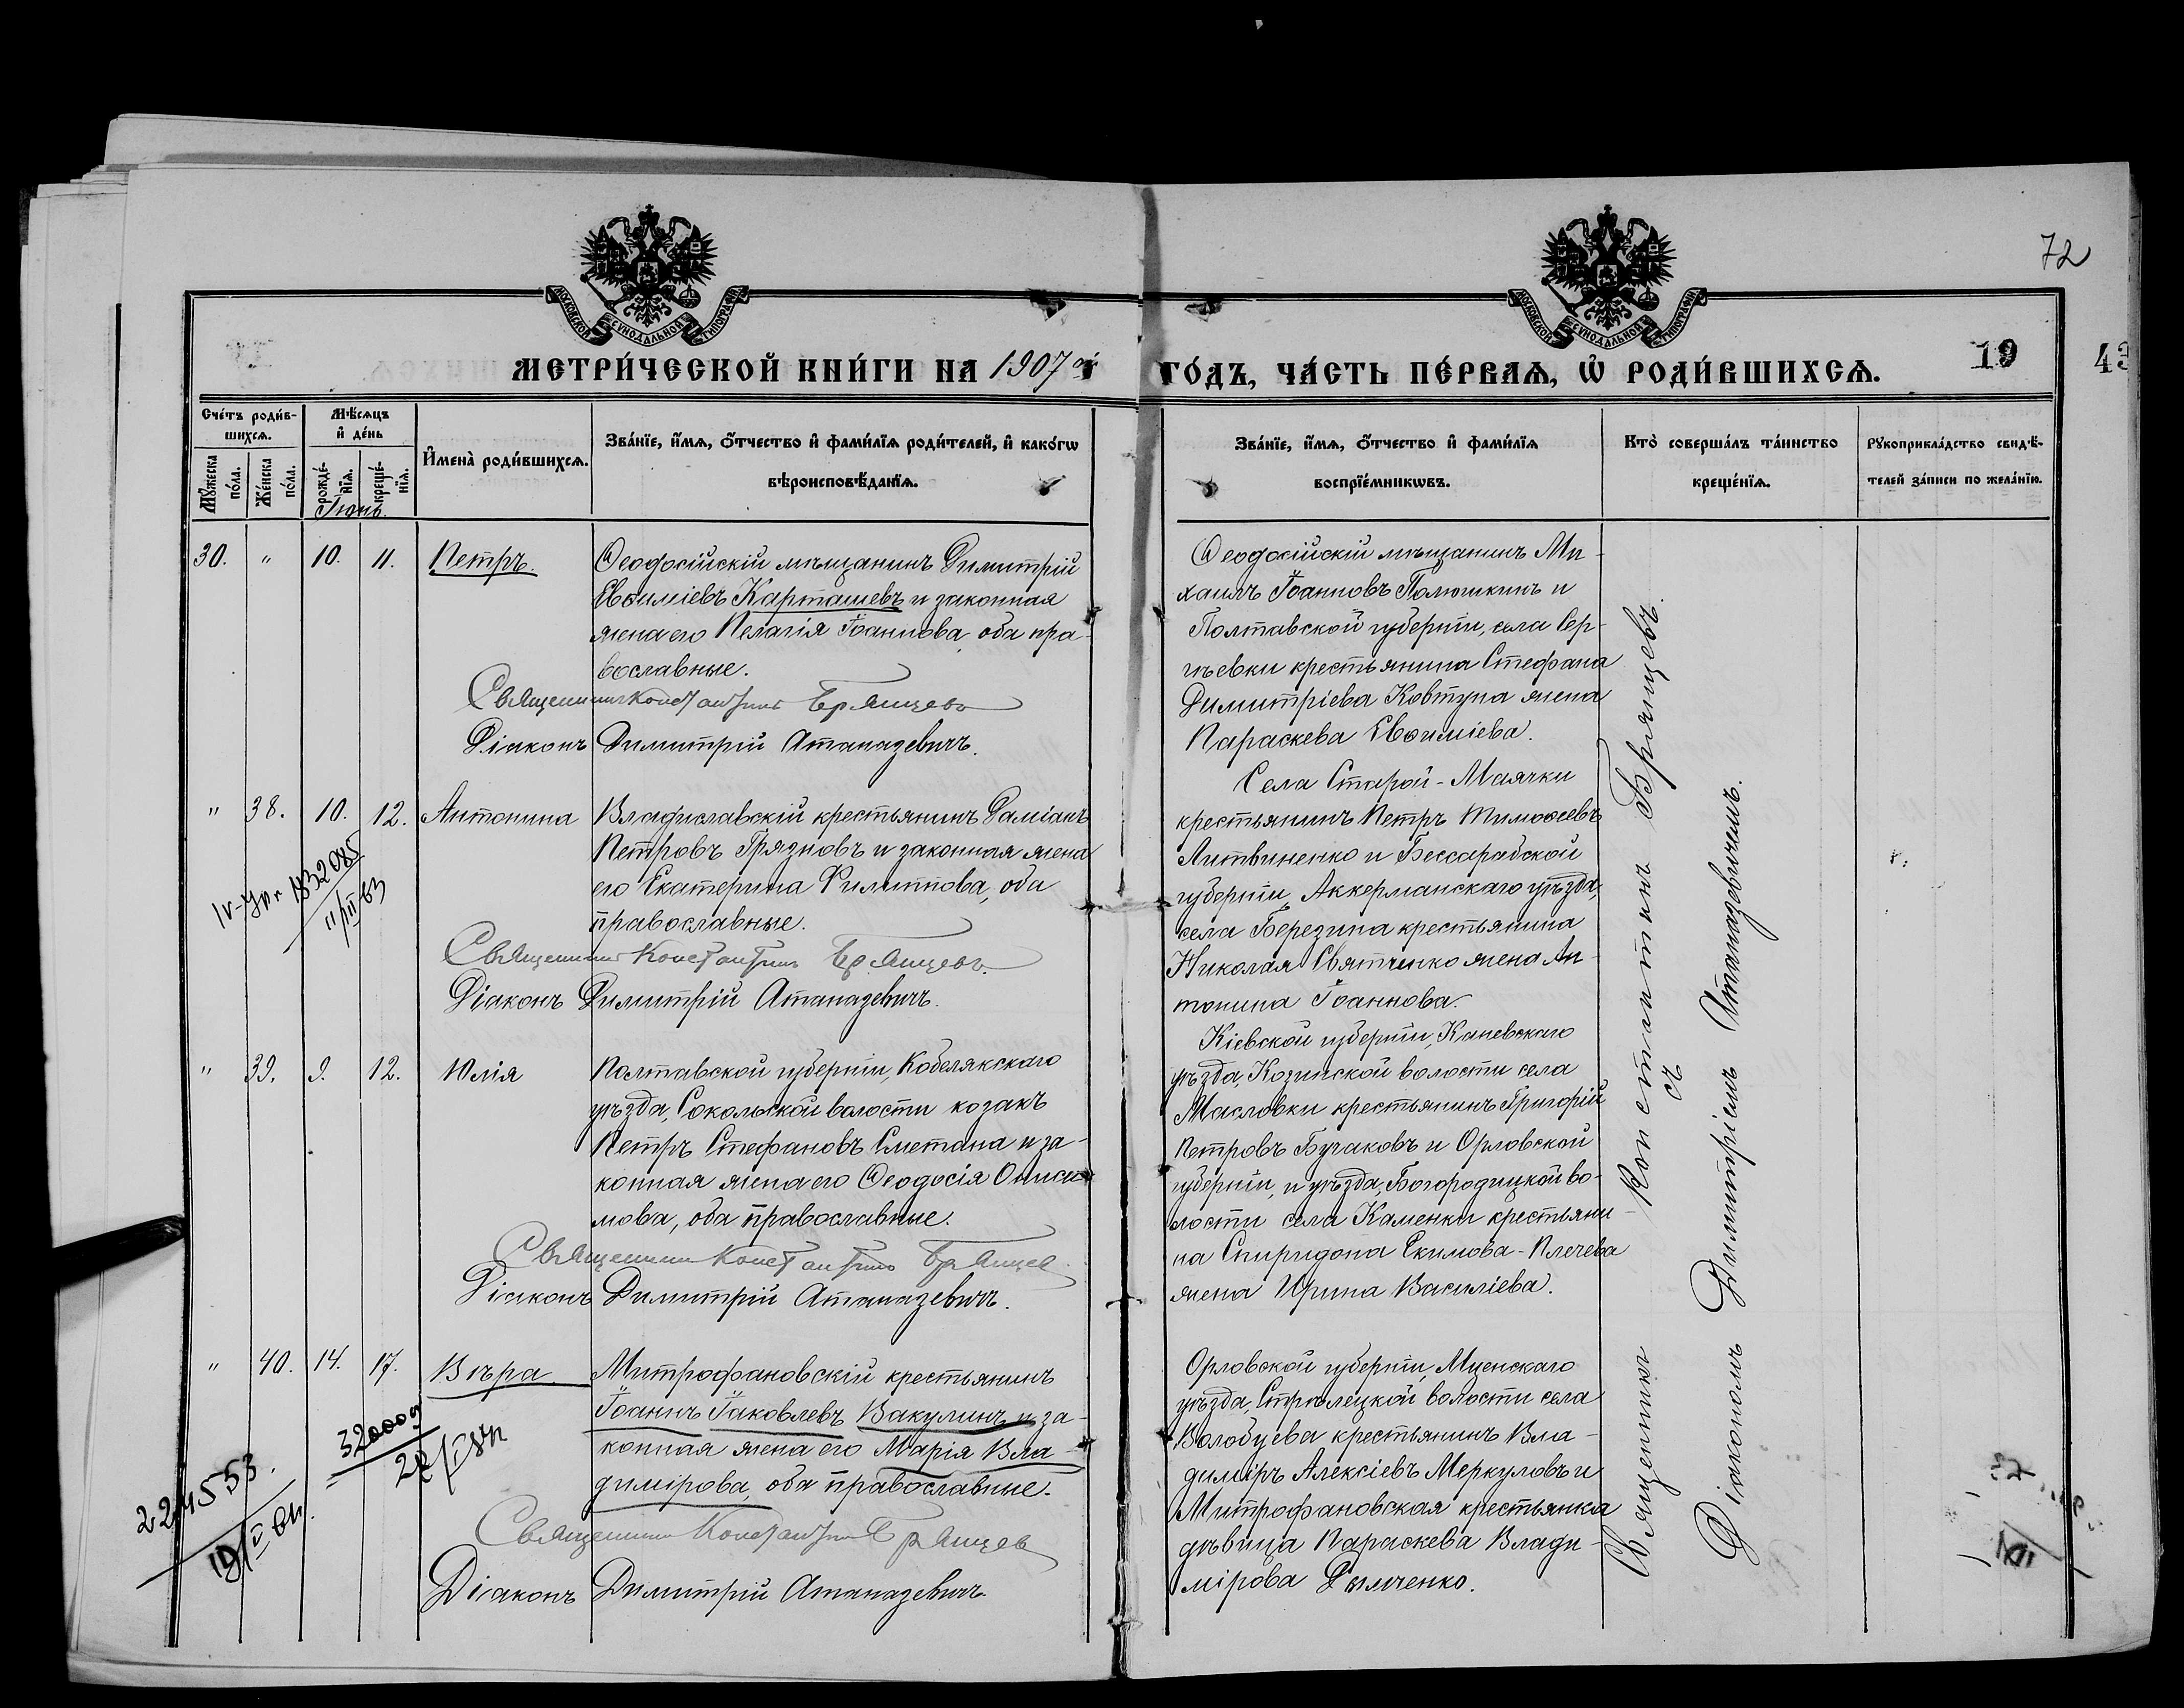 72
МОСКОВСКОЙ СѴНОДАЛЬНОЙ ТИПОГРАФІИ
МОСКОВСКОЙ СѴНОДАЛЬНОЙ ТИПОГРАФІИ
МЕТРИ́ЧЕСКОЙ КНИ́ГИ НА 1907 ой
ГО́ДЪ, ЧА́СТЬ ПЕ́РВАѦ, Ѡ РОДИ́ВШИХСѦ.
19
43
Сче́тъ роди́в-
шихсѧ.
Мꙋжеска по́ла.
Же́нска по́ла.
Мѣ́сѧцъ
и҆ де́нь
рожде́-
нїѧ.
креще́-
нїѧ.
Іюнь.
И҆мена̀ роди́вшихсѧ.
Зва́нїе, и҆́мѧ, ѻ҆́тчество и҆ фами́лїѧ роди́телей, и҆ како́гѡ
вѣроисповѣ́данїѧ.
Зва́нїе, и҆́мѧ, ѻ҆́тчество и҆ фами́лїѧ
воспрїе́мникѡвъ.
Кто̀ соверша́лъ та́инство
креще́нїѧ.
Рꙋкоприкла́дство свидѣ́-
телей за́писи по жела́нїю.
30. " 10. 11. Петръ.
Ѳеодосійскій мѣщанинъ Димитрій
Евѳиміевъ Карташевъ и законная
жена его Пелагія Іоаннова, оба пра-
вославные.
Священникъ Константинъ Брянцевъ
Діаконъ Димитрій Атаназевичъ.
Ѳеодосійскій мѣщанинъ Ми-
хаилъ Іоанновъ Полюшкинъ и
Полтавской губерніи, села Сер-
гѣевки крестьянина Стефана
Димитріева Ковтуна жена
Параскева Евѳиміева.
" 38. 10. 12. Антонина
Владиславскій крестьянинъ Даміанъ
Петровъ Грязновъ и законная жена
его Екатерина Филиппова, оба
православные.
Священникъ Константинъ Брянцевъ.
Діаконъ Димитрій Атаназевичъ.
1832085
11/III 63
Села Старой-Маячки
крестьянинъ Петръ Тимоѳеевъ
Литвиненко и Бессарабской
губерніи, Аккерманскаго уѣзда,
села Березина крестьянина
Николая Святченко жена Ан-
тонина Іоаннова.
" 39. 9. 12. Юлія
Полтавской губерніи, Кобелякскаго
уѣзда, Сокольской волости козакъ
Петръ Стефановъ Сметана и за-
конная жена его Ѳеодосія Ониси-
мова, оба православные.
Священникъ Константинъ Брянцев
Діаконъ Димитрій Атаназевичъ.
Кіевской губерніи, Каневскаго
уѣзда, Козинской волости села
Масловки крестьянинъ Григорій
Петровъ Бучаковъ и Орловской
губерніи, и уѣзда, Богородицкой во-
лости села Каменки крестьяни-
на Спиридона Екимова-Плечева
жена Ирина Василіева.
" 40. 14. 17. Вѣра
Митрофановскій крестьянинъ
Іоаннъ Іаковлевъ Вакулинъ и за-
конная жена его Марія Вла-
димірова, оба православные.
Священникъ Константинъ Брянцев
Діаконъ Димитрій Атаназевичъ
Орловской губерніи, Мценскаго
уѣзда, Стрѣлецкой волости села
Волобуева крестьянинъ Вла-
диміръ Алексіевъ Меркуловъ и
Митрофановская крестьянка
дѣвица Параскева Влади-
мірова Дымченко.
Священникъ Константинъ Брянцевъ.
съ
Діакономъ Димитріемъ Атаназевичемъ.